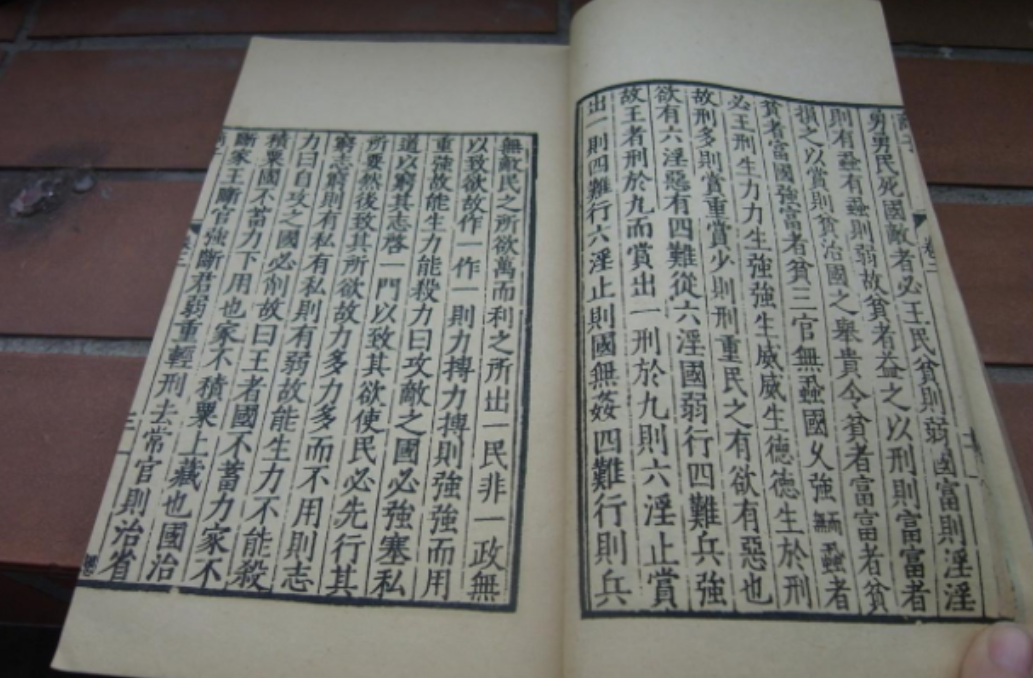 卷二
勇勇民死國敵者必王民貧則弱國富則淫淫
則有蝨有蝨則弱故貧者益之以刑則富富者
損之以賞則貧治國之舉貴令貧者富富者貧
貧者富國強富者貧三官無蝨國久強而無蝨者
必王刑生力力生強強生威威生德德生於刑
故刑多則賞重賞少則刑重民之有欲有惡也
欲有六淫惡有四難從六淫國弱行四難兵強
故王者刑於九而賞出一刑於九則六淫止賞
出一則四難行六淫止則國無姦四難行則兵
無敵民之所欲萬而利之所出一民非一政無
以致欲故作一作一則力摶力摶則強強而用
重強故能生力能殺力曰攻敵之國必強塞私
道以窮其志啓一門以致其欲使民必先行其
所要然後致其所欲故力多力多而不用則志
窮志窮則有私有私則有弱故能生力不能殺
力曰自攻之國必削故曰王者國不蓄力家不
積粟國不蓄力下用也家不積粟上藏也國治
斷家王斷官強斷君弱重輕刑去常官則治省